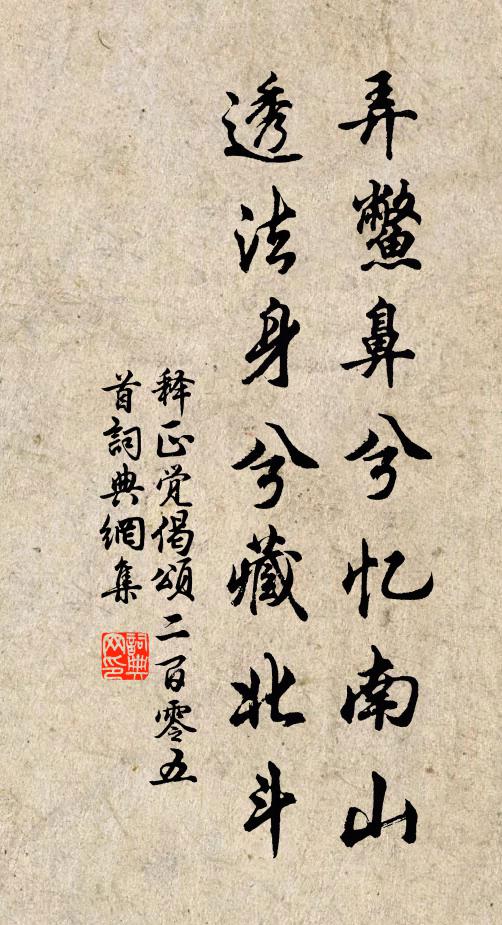 弄鱉鼻兮忆南山
透法身兮藏北斗
释正觉偈頌二百零五
首詞典網集
詞典网印